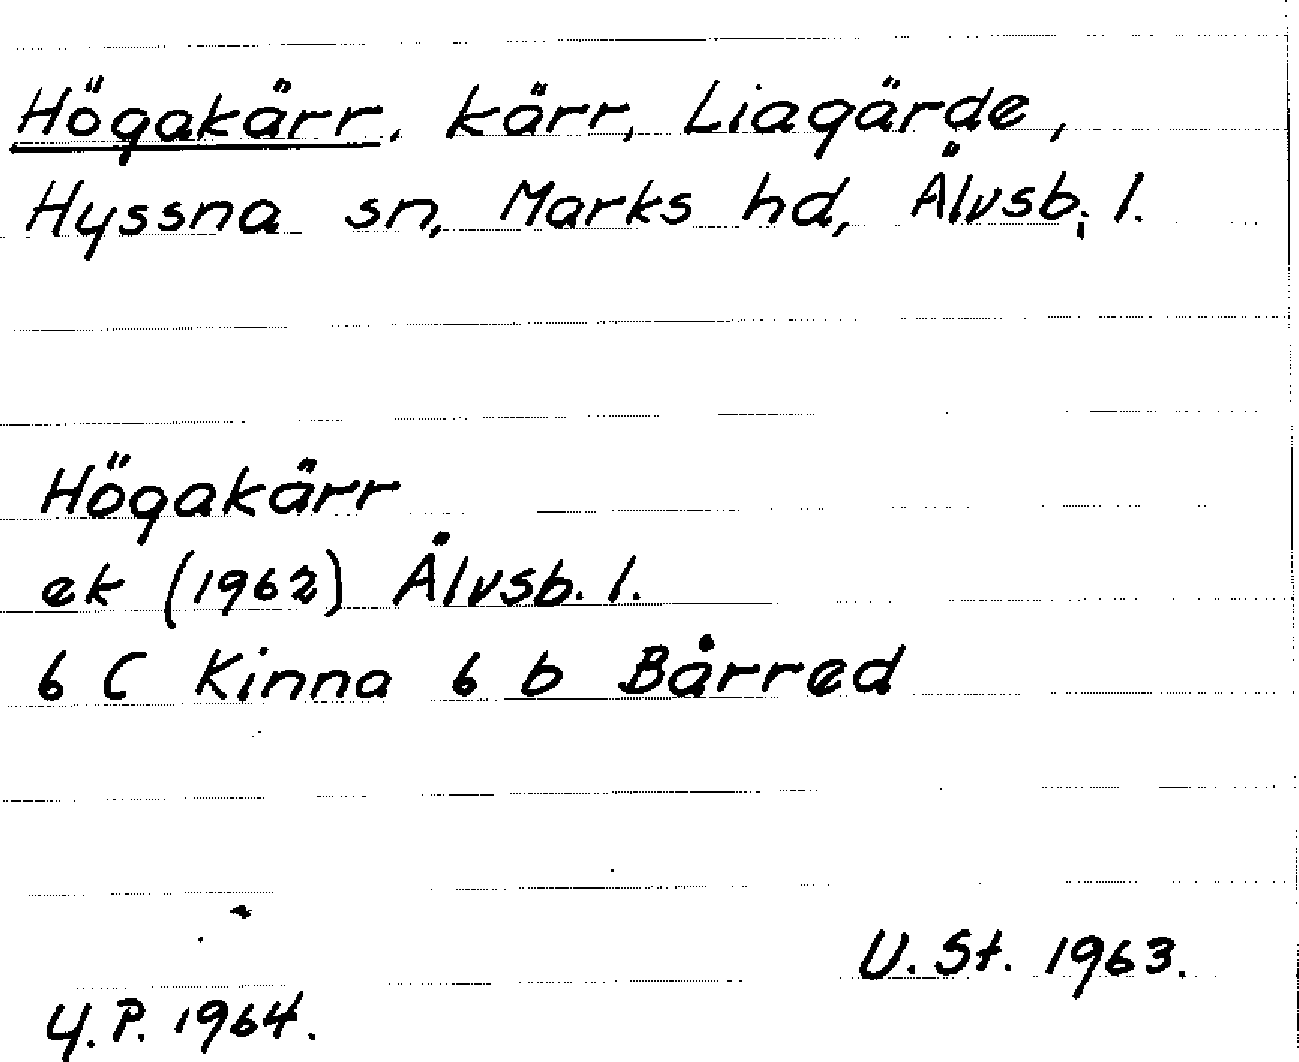 Högakärr, kärr, Liagärde,
Hyssna sn, Marks hd, Älvsb. l.
Högakärr
ek (1962) Älvsb. l.
6 C Kinna 6 b Bårred
U. St. 1963.
Y. P. 1964.